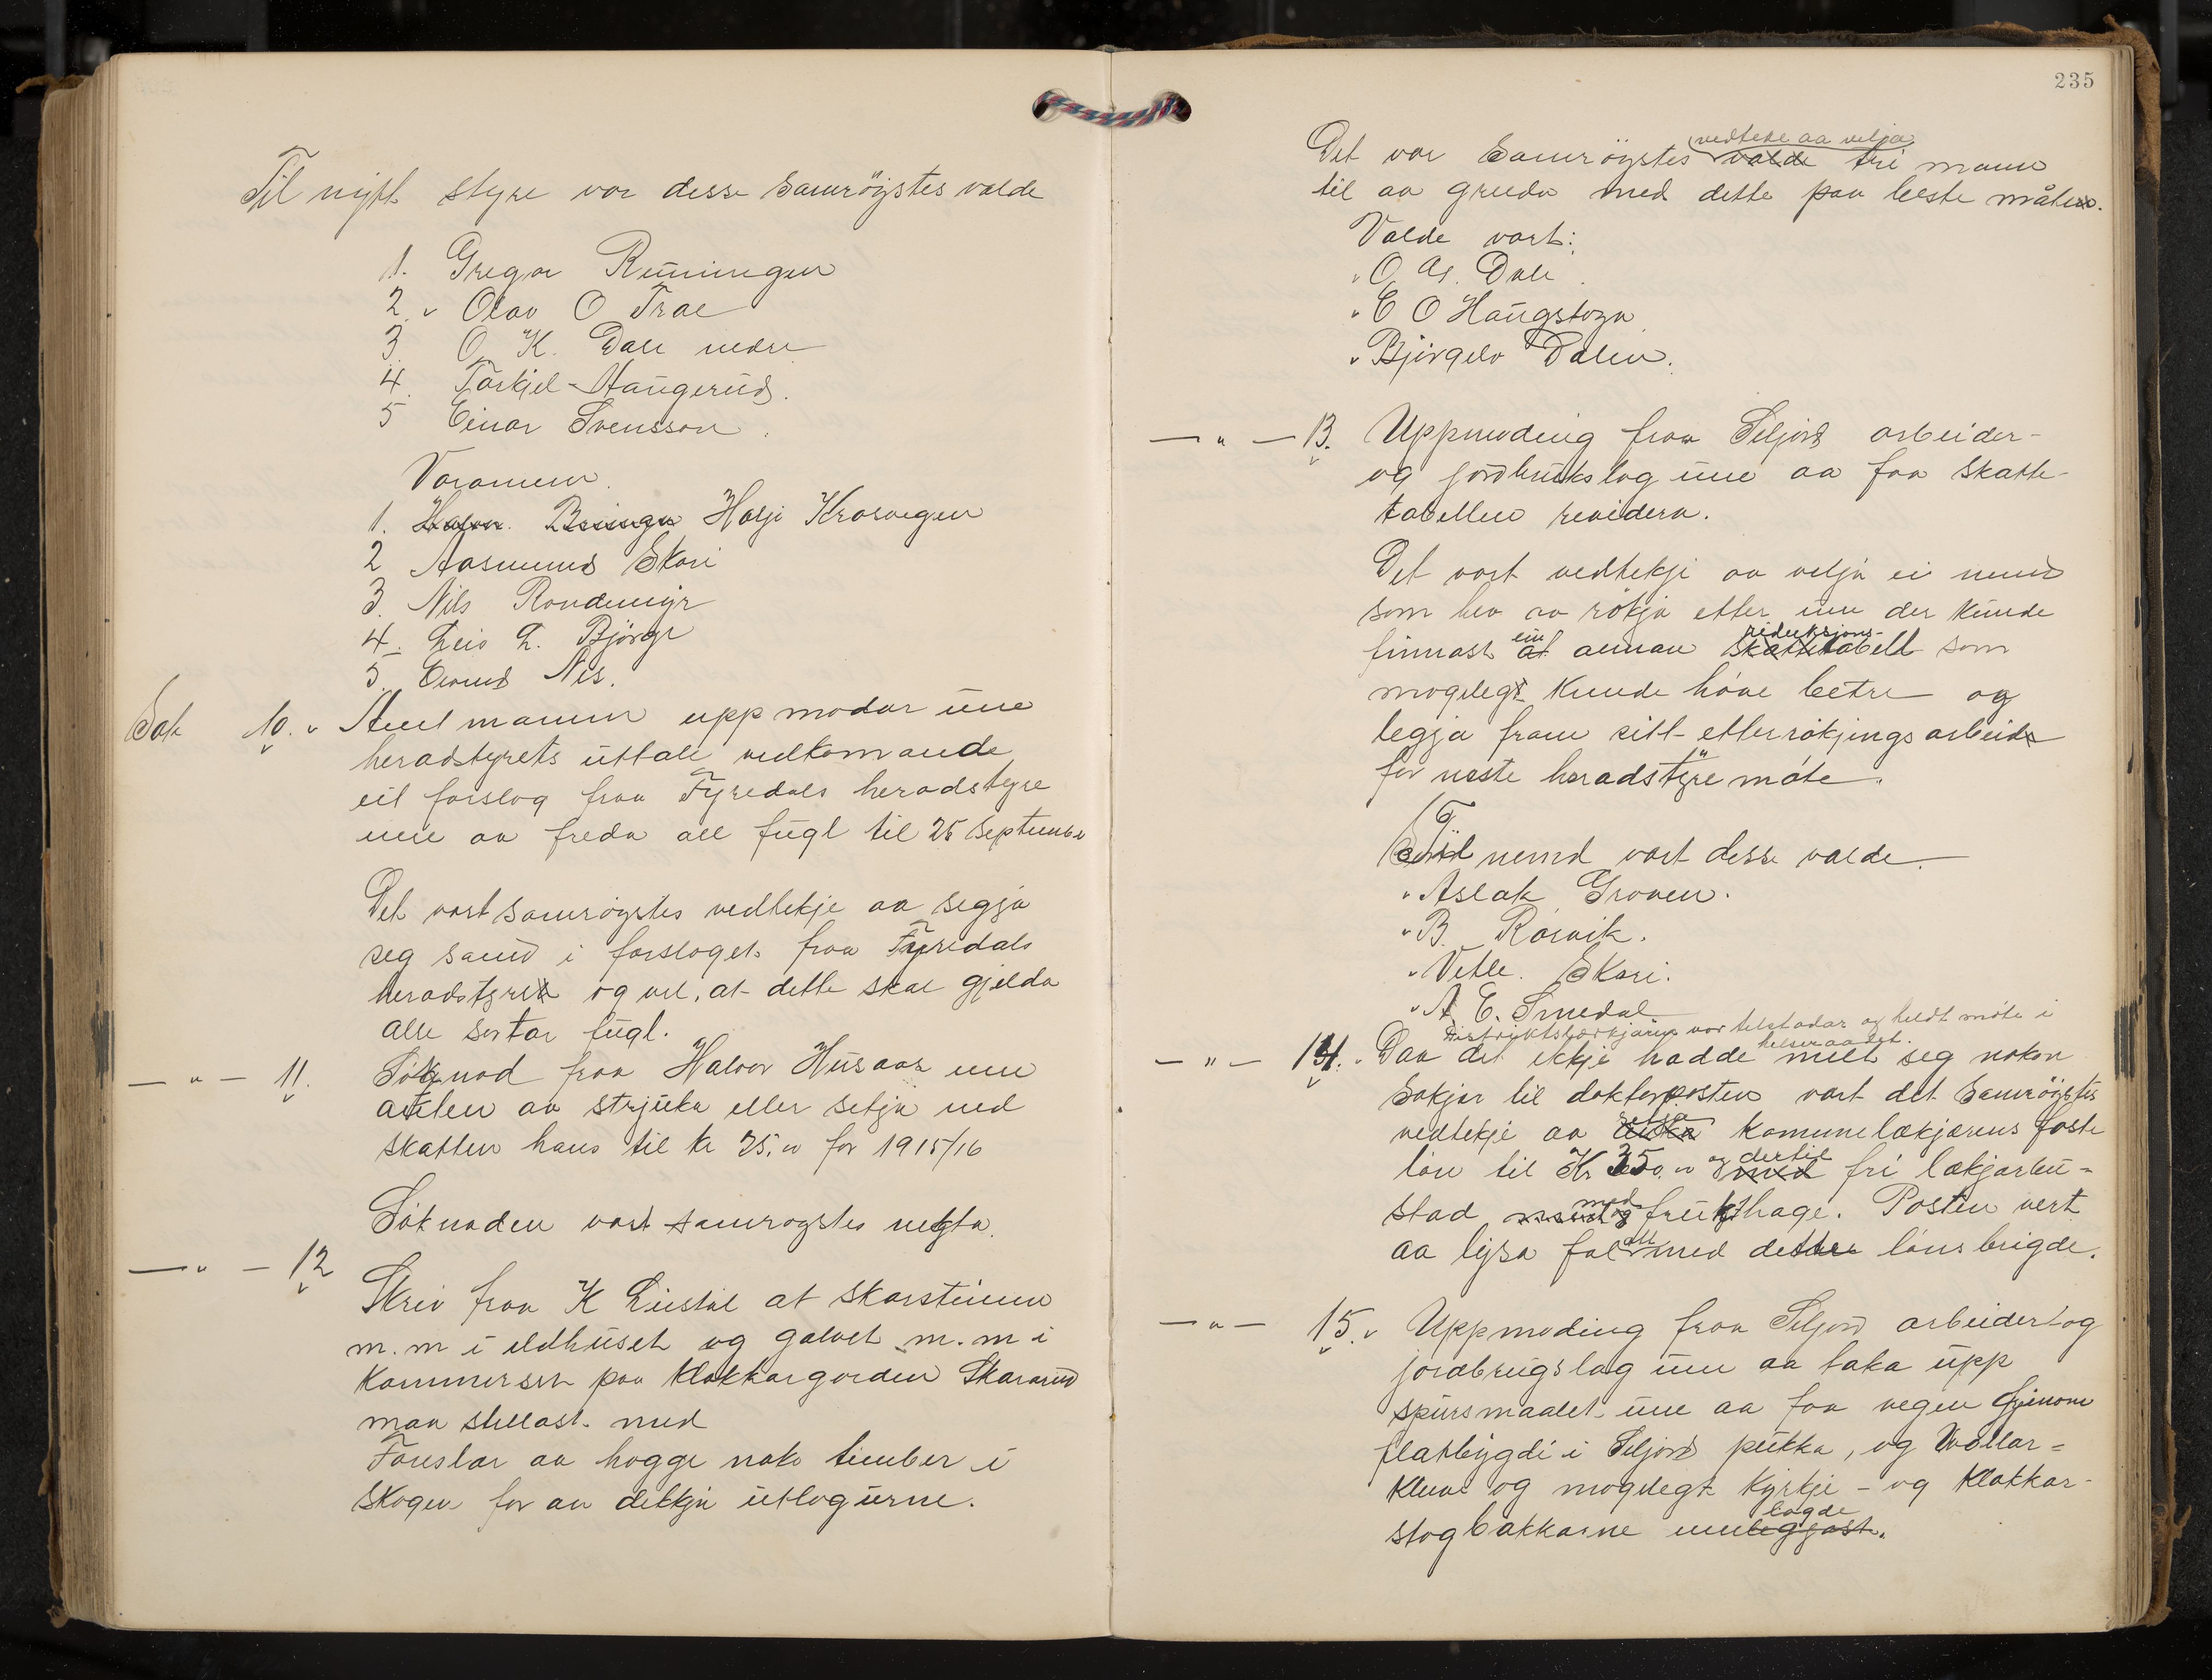 Til nytt styre var desse samröystes valde
1. Gregar Runingen
2. Olav O Trae
3. O. K. Dale nedre
4. Torkjel Haugerud.
5 Einar Svensson.
Varamenn.
1. Halvor Haljí Krosvegen
2 Aasmund Skori
3. Nils Rondemyr
4. Leiv L. Björge
5. Eivind Nes.
Sak 10. Amtmannen uppmodar um
heradstyrets uttale vedkomande
eit forslag fraa Fyredals heradstyre
um aa freda all fugl til 25 September
Det vart samröystes vedtekje aa segja
seg samd i forslaget fraa Fyredals
heradstyre og vil, at dette skal gjelda
alle sortar fugl.
— " — 11. Söknad fraa Halvor Husaas um
anten aa strjuka eller setja ned
skatten hans til kr 25,00 for 1915/16
Söknaden vart samrøystes negta.
— " — 12
Skriv fraa K Liestøl at skorsteinen
m. m i eldhuset og golvet m. m i
Kammersen paa Klokkargarden Skararud
maa stellast med
Foreslar aa hogge noko timber i
skogen for aa dekkja utlogurne.
235
Det var Samröystes valde vedteke aa velja tri mann
til aa greida med dette paa beste måten.
Valde vart:
" O. As. Dale
" E O Haugstoga
" Bjørgulv Dalen.
— " — 13. Uppmoding fraa Seljord arbeidar-
og jordbrukslag um aa faa skatte-
tabellen revidera.
Det vart vedtekje aa velja ei nemd
som hev aa rökja etter um der kunde
finnast at ein annan skattetabell reduksjons- som
mogelegt kunde høve betre og
leggja fram sitt etterrökjings arbeid
for neste heradstyre møte.
Til nemd vart desse valde.
" Aslak Groven.
" B. Rørvik.
" Vetle Skori.
" A. E. Smedal.
Distriktslækjaren var tilstadar og heldt møte i
helseraadet.
— " — 14. Daa det ikkje hadde meldt seg nokon
Søkjar til doktorposten vart det Samröystes
vedtekje aa auka setja komunelækjarens faste
løn til Kr 350.00 og med dertil fri lækjarbu-
stad med frukthage. Posten vert
aa lysa fal att med dette lønsbrigde.
— " — 15. Uppmoding fraa Seljord arbeidar og
jordbrugslag um aa taka upp
spursmaalet um aa faa vegen gjenom
flatbygdi i Seljord pukka, og Vøllar-
kleivi og mogelegt kyrkje- og Klokkar-
stogbakkarne umleggjast. lagde